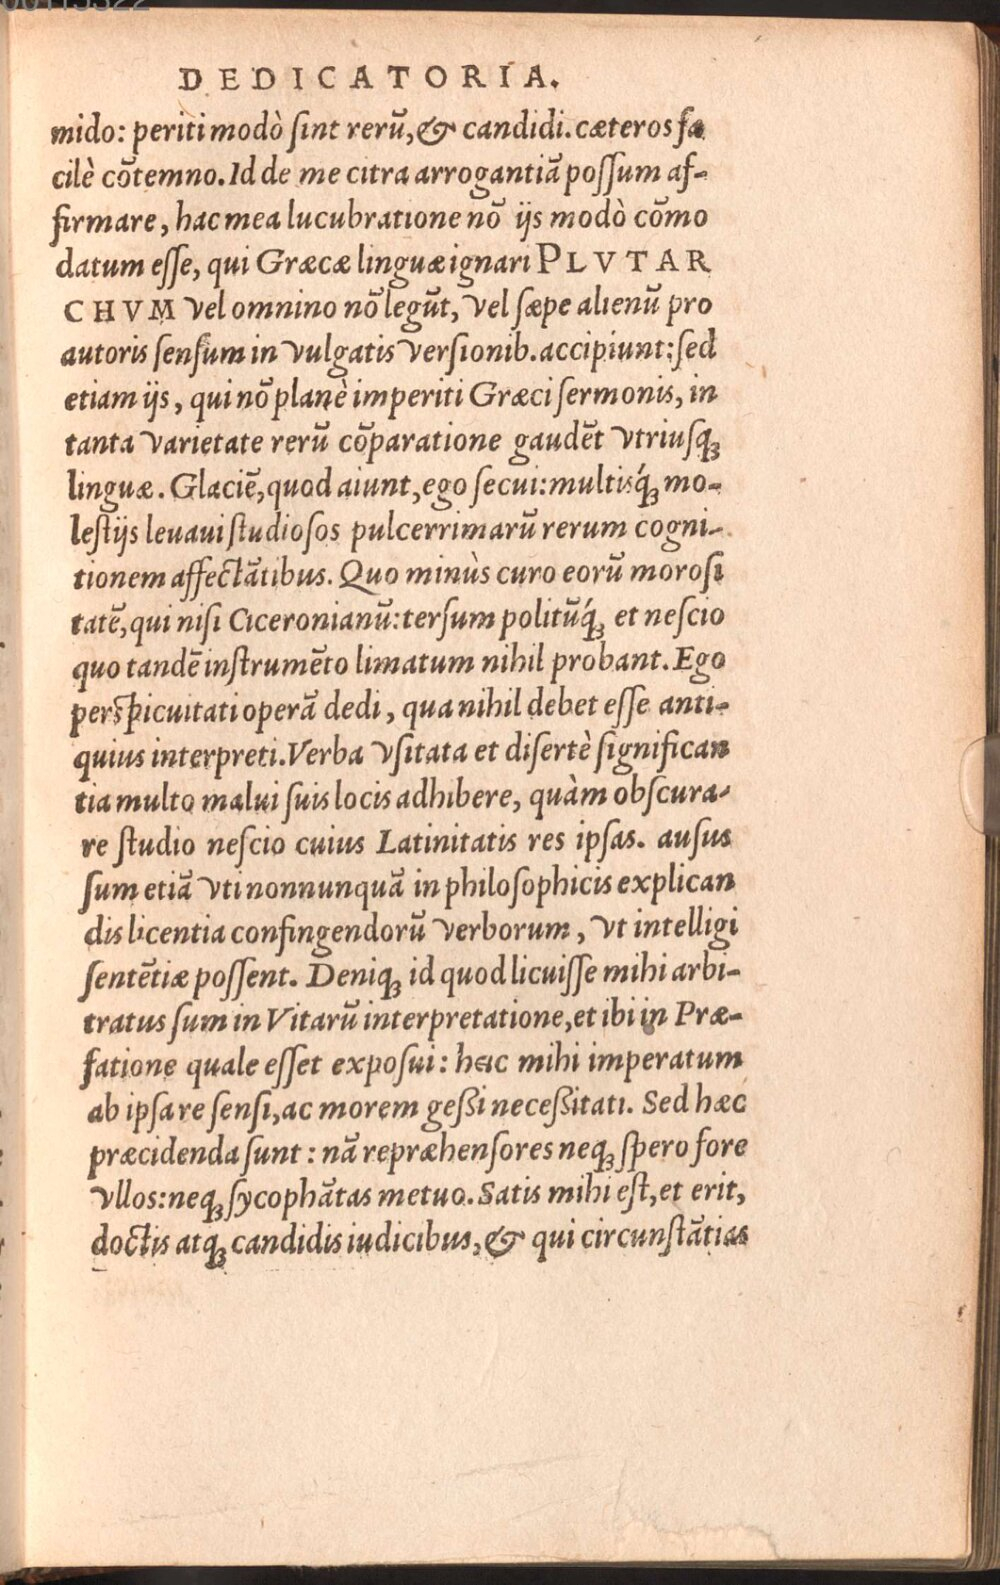 DEDICATORIA.
mido: periti modò ſint rerũ, & candidi. cæteros fa
cilè cõtemno. Id de me citra arrogantiã poſſum af-
firmare, hac mea lucubratione nõ ijs modò cõmo
datum eſſe, qui Græcæ linguæ ignari PLVTAR
CHVM vel omnino nõ legũt, vel ſæpe alienũ pro
autoris ſenſum in vulgatis verſionib. accipiunt: ſed
etiam ijs, qui nõ planè imperiti Græci ſermonis, in
tanta varietate rerũ cõparatione gaudẽt vtriuſq;
linguæ. Glaciẽ, quod aiunt, ego ſecui: multisq́; mo-
leſtijs leuaui ſtudioſos pulcerrimarũ rerum cogni-
tionem affectãtibus. Quo minùs curo eorũ moroſi
tatẽ, qui niſi Ciceronianũ: terſum politũq́; et neſcio
quo tandẽ inſtrumẽto limatum nihil probant. Ego
perſpicuitati operã dedi, qua nihil debet eſſe anti-
quius interpreti. Verba vſitata et diſertè ſignifican
tia multo malui ſuis locis adhibere, quàm obſcura-
re ſtudio neſcio cuius Latinitatis res ipſas. auſus
ſum etiã vti nonnunquã in philoſophicis explican
dis licentia confingendorũ verborum, vt intelligi
ſentẽtiæ poſſent. Deniq; id quod licuiſſe mihi arbi-
tratus ſum in Vitarũ interpretatione, et ibi in Præ-
fatione quale eſſet expoſui: hæc mihi imperatum
ab ipſa re ſenſi, ac morem geßi neceßitati. Sed hæc
præcidenda ſunt: nã repræhenſores neq; ſpero fore
vllos: neq; ſycophãtas metuo. Satis mihi eſt, et erit,
doctis atq; candidis iudicibus, & qui circunſtãtias